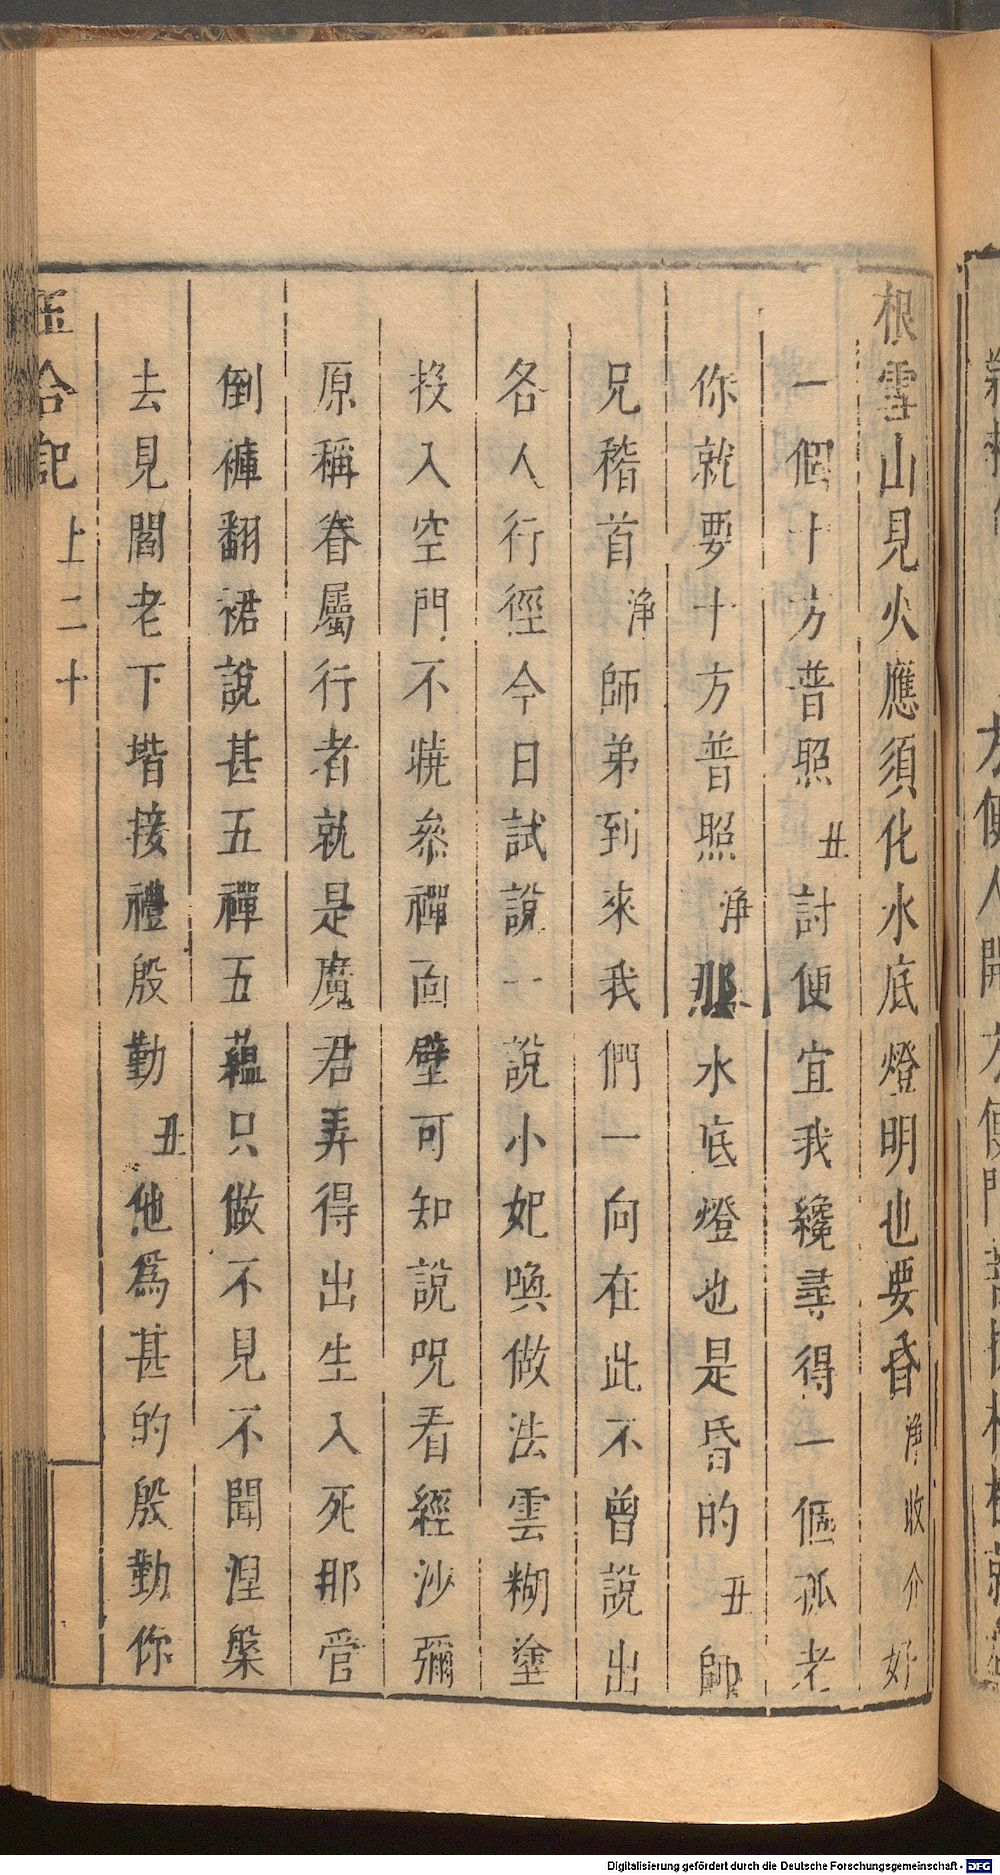 根雪山見火應須化水底燈明也要昏淨收介好
一個十方普照丑討便宜我纔尋得一個孤老
你就要十方普照淨那水底燈也是昏的丑師
兄稽首淨師弟到來我們一向在此不曾說出
各人行徑今日試說一說小妃喚做法雲糊塗
投入空門不燒參禪面壁可知說呪看經沙彌
原稱眷屬行者就是魔君弄得出生入死那管
倒褲翻裙說甚五禪五蘊只做不見不聞涅槃
去見閻老下堦接禮殷勤丑他爲甚的殷勤你
合記 上二十
方便人開方便門
Digitalisierung gefördert durch die Deutsche Forschungsgemeinschaft - DFG